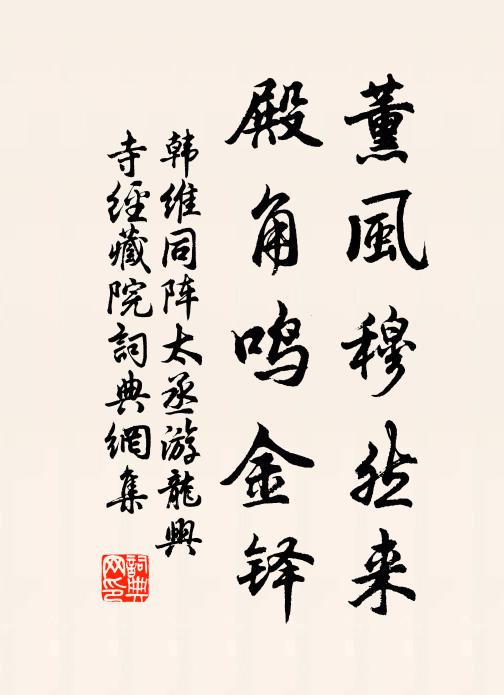 薰風穆然来
殿角鸣金铎
韩維同阵太丞游龍興
寺經藏院詞典網集
詞典
网印